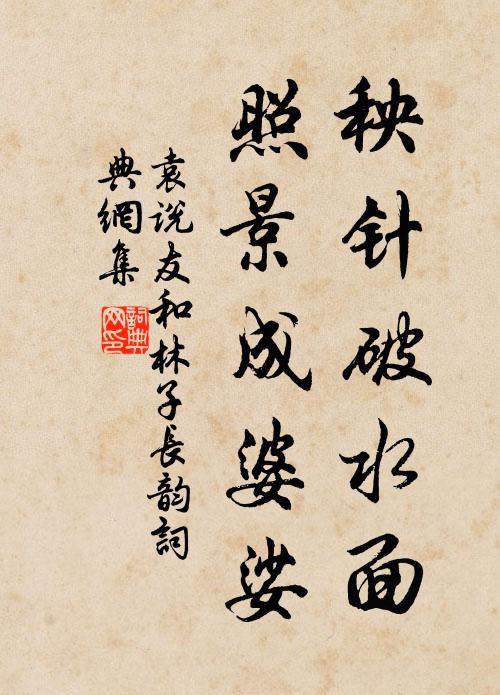 秧针破水面
照景成婆娑
袁说友和林子長韵詞
典網集
詞典網印